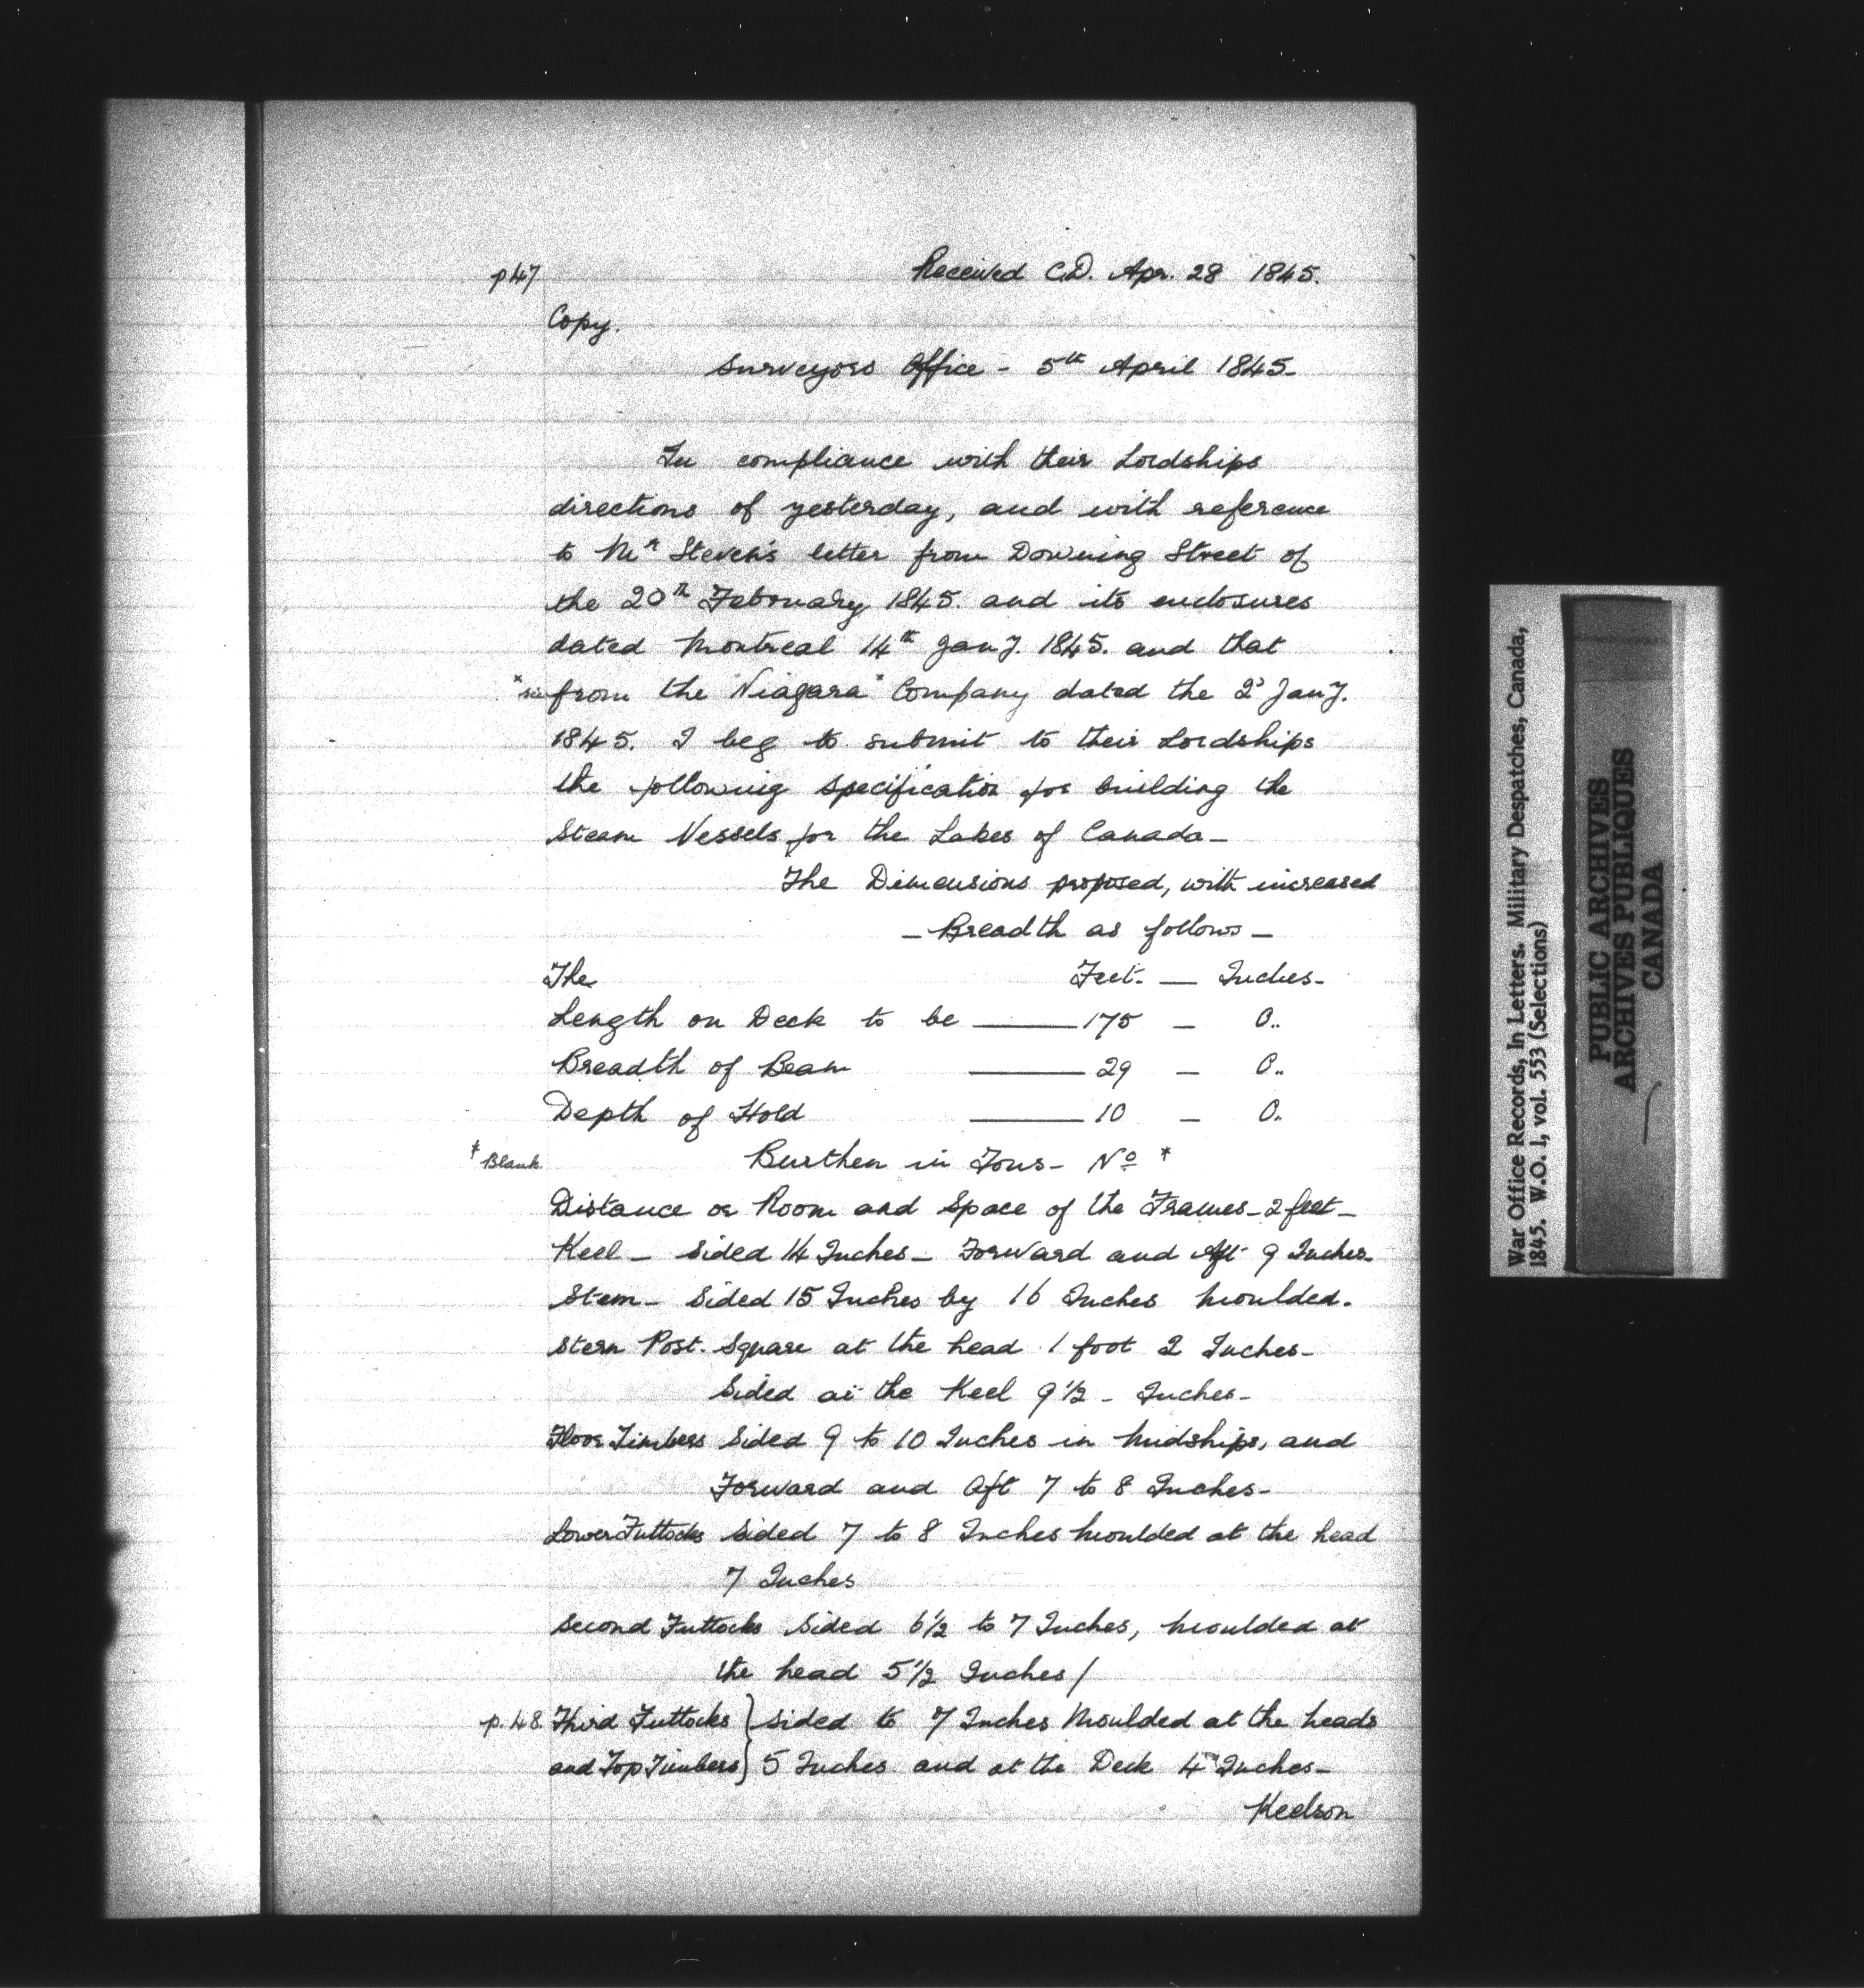 p 47 Received C.D. Apr. 28 1845.
Copy.
Surveyors Office - 5th April 1845-
In compliance with their Lordships
directions of yesterday, and with reference
to Mr Steven's letter from Downing Street of
the 20th February 1845. and its enclosures
dated Montreal 14th Jany. 1845. and that
from the "Niagara" Company dated the 2d Jany.
1845. I beg to submit to their Lordships
the following specification for building the
Steam Vessels for the Lakes of Canada-
The Dimensions proposed, with increased
- Breadth as follows -
The Feet. - Inches-
Length on Deck to be ——— 175 - 0..
Breadth of Beam ——— 29 - 0..
Depth of Hold ——— 10 - 0..
* Blank. Burthen in Tons- No *
Distance or Room and Space of the Frames- 2 feet-
Keel - Sided 14 Inches- Forward and Aft 9 Inches-
Stem- Sided 15 Inches by 16 Inches moulded.
Stern Post. Square at the head 1 foot 2 Inches-
Sided at the Keel 9 1/2 - Inches-
Floor Timbers Sided 9 to 10 Inches in Midships, and
Forward and Aft 7 to 8 Inches-
Lower Futtocks Sided 7 to 8 Inches moulded at the head
7 Inches
Second Futtocks Sided 6 1/2 to 7 Inches, moulded at
the head 5 1/2 Inches/
p. 48. Third Futtocks } Sided to 7 Inches Moulded at the heads
and Top Timbers } 5 Inches and at the Deck 4 Inches-
Keelson
War Office Records, In Letters. Military Despatches, Canada,
1845. W.O. 1, vol. 553 (Selections)
PUBLIC ARCHIVES
ARCHIVES PUBLIQUES
CANADA